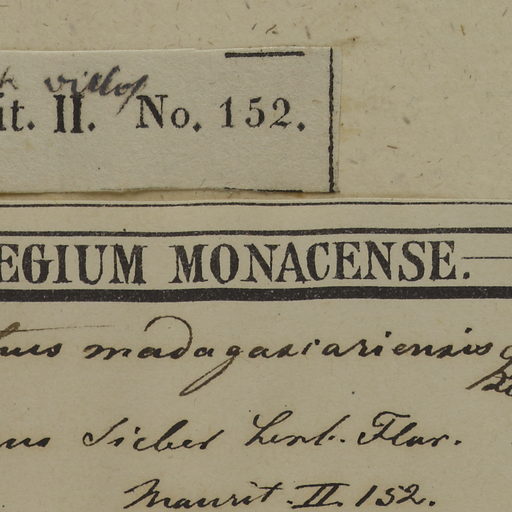 villos
it. II. No. 152.
EGIUM MONACENSE.
madagascariensis
Sieber herb. Flor.
Maurit. II. 152.